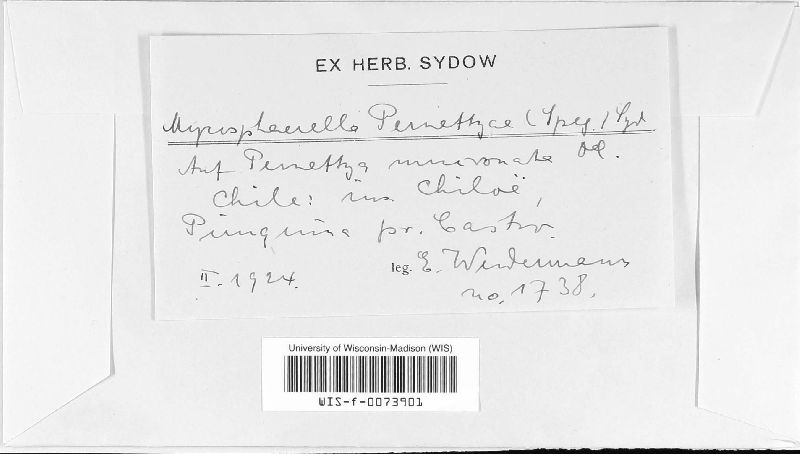 EX HERB. SYDOW
Mycosphaerella Pernettyae (Speg.) Syd.
Auf Pernettya mucronata
Chile: ins. Chiloë,
Punquina pr. Castro.
II. 1924.
leg. E. Werdermann
no. 1738.
University of Wisconsin-Madison (WIS)
WIS-f-0073901